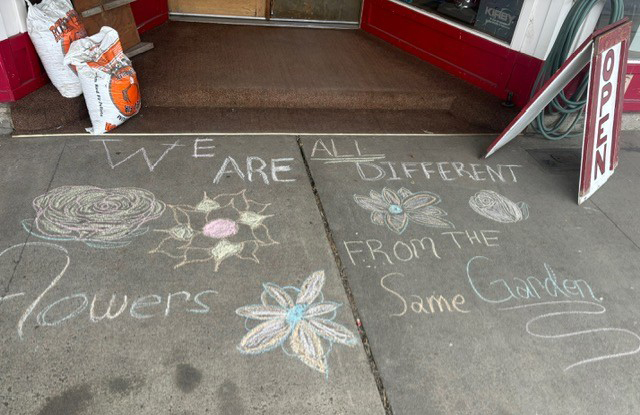 WE ARE ALL DIFFERENT
Flowers FROM THE
Same Garden
OPEN